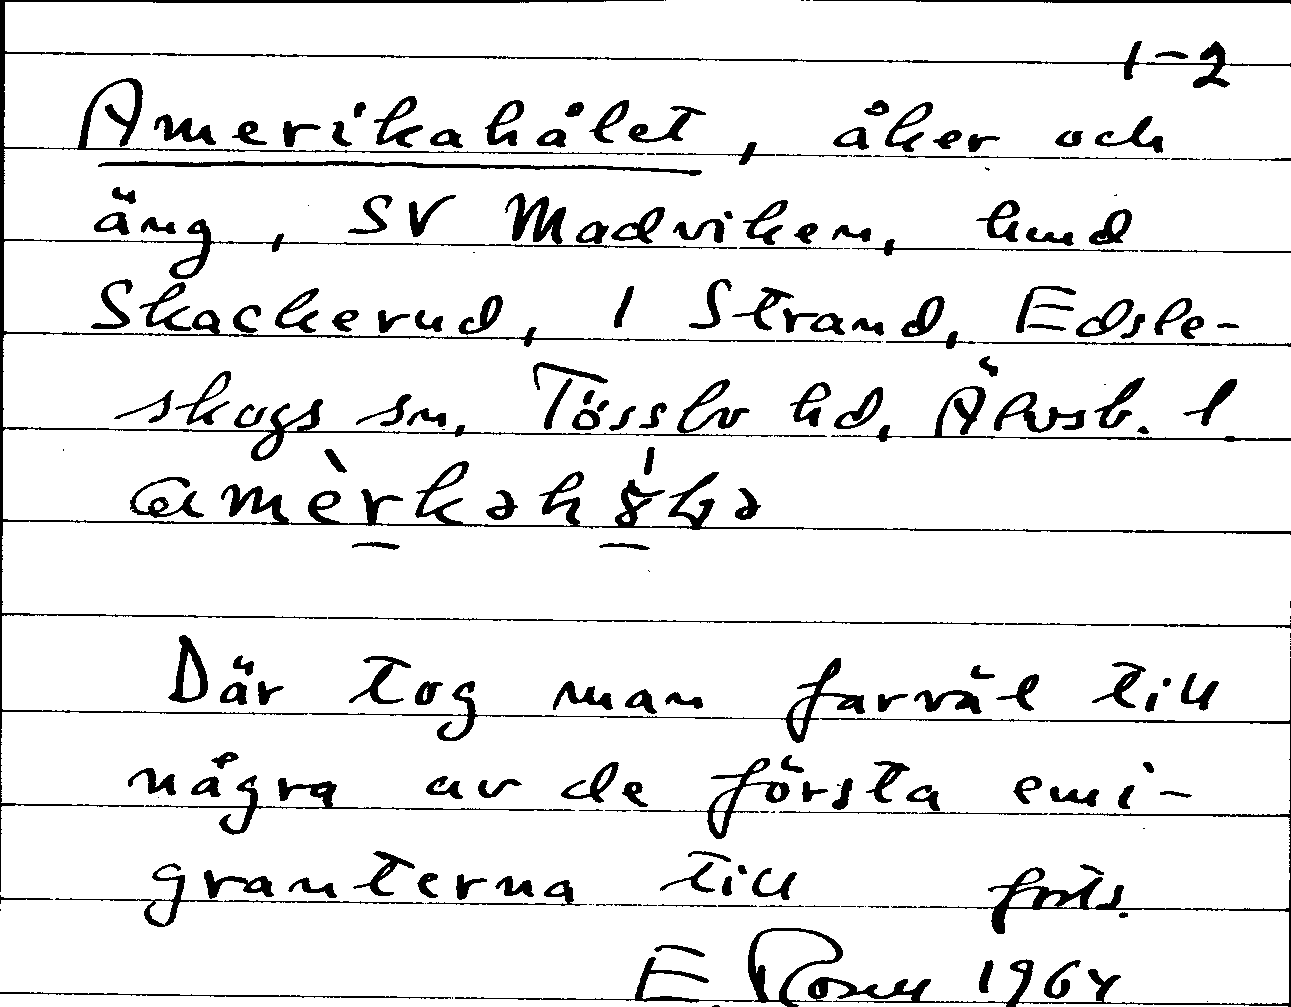 1-2
Amerikahålet, åker och
äng, SV Madviken, hmd
Skackerud, 1 Strand, Edsle-
skogs sn, Tössbo hd, Älvsb. l.
Där tog man farväl till
några av de första emi-
granterna till forts.
E Rosell 1964